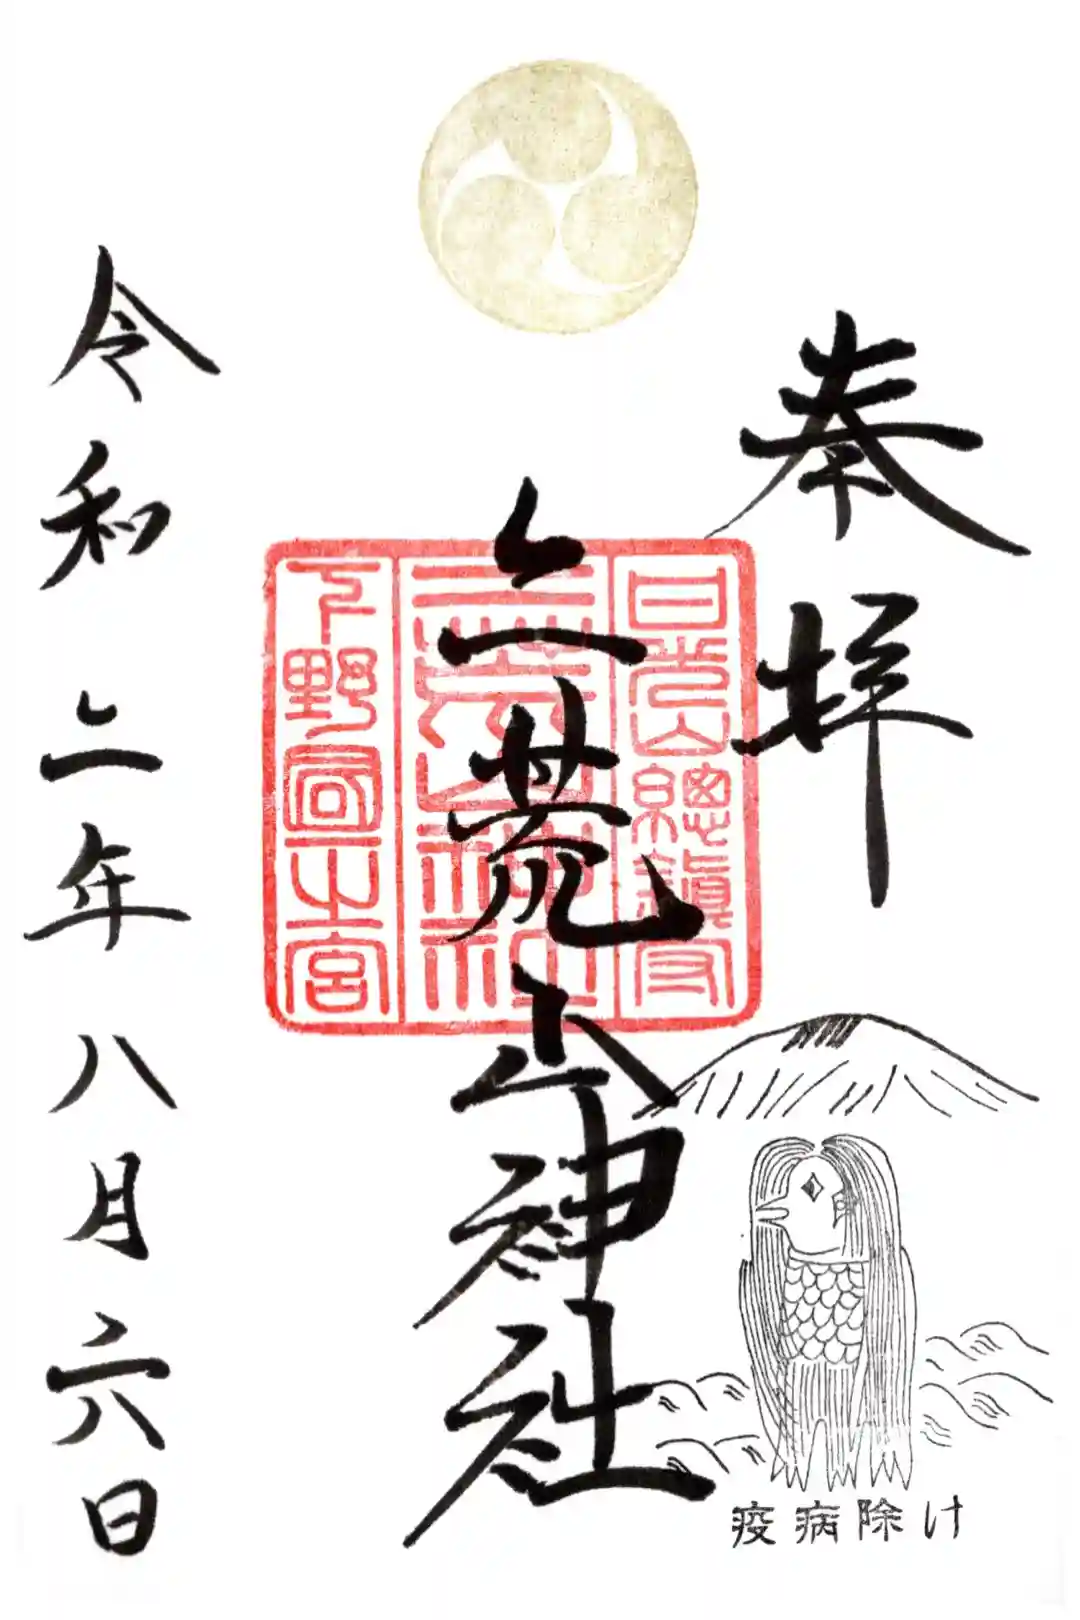 奉拝
日光山總鎮守
二荒山神社
二荒山神社
下野國一之宮
令和二年八月六日
疫病除け